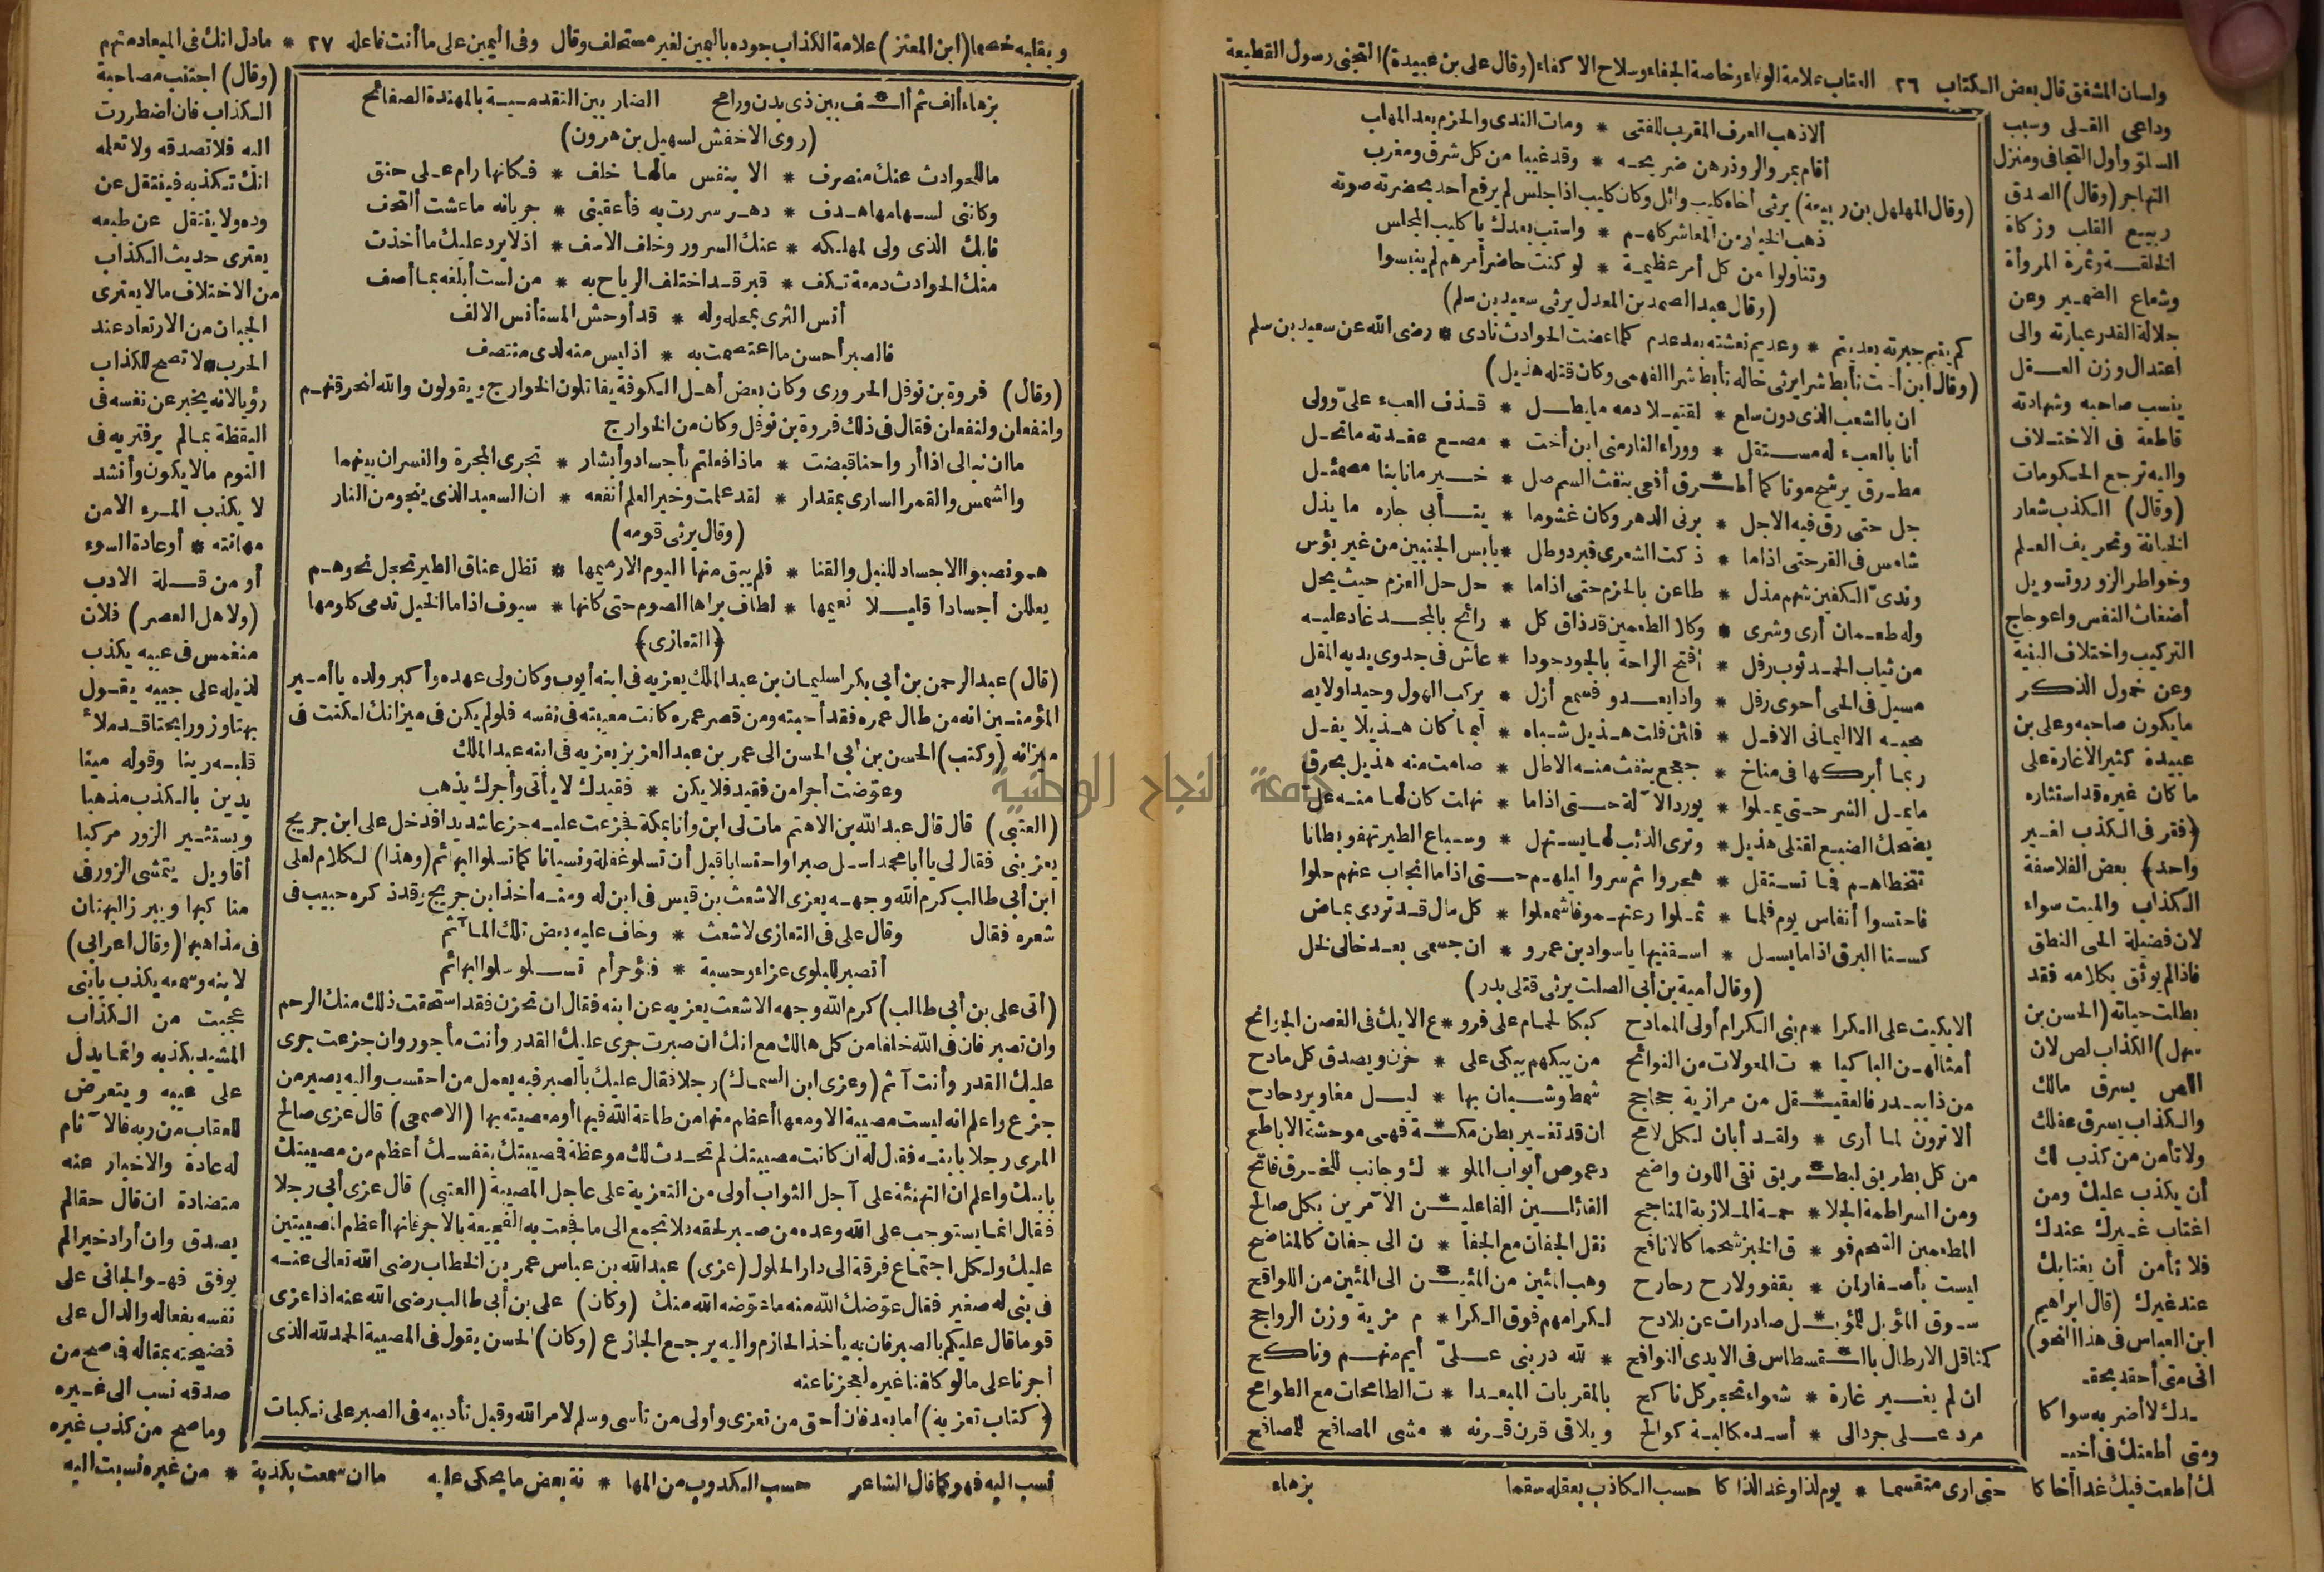 ولسان المشفق قال بعض الكتاب ٢٦ العتاب علامة الوفاء وخاصة الجفاء وسلاح الاكفاء (وقال على بن عبيدة) التجنى رسول القطيعة
وداعى القلى وسبب
السلو وأول التجافى ومنزل
التهاجر (وقال) الصدق
ربيع القلب وزكاة
الخلقة وثمرة المروأة
وشعاع الضمير وعن
جلالة القدر عبارته والى
اعتدال وزن العقل
ينسب صاحبه وشهادته
قاطعة فى الاختلاف
واليه ترجع الحكومات
(وقال) الكذب شعار
الخيانة وتحريف العلم
وخواطر الزور وتسويل
أضغاث النفس واعوجاج
التركيب واختلاف البنية
وعن خمول الذكر
مايكون صاحبه وعلى بن
عبيدة كثير الاغارة على
ما كان غيره قد استثاره
(فقر فى الكذب لغير
واحد) بعض الفلاسفة
الكذاب والميت سواء
لان فضيلة الحى النطق
فاذا لم يوثق بكلامه فقد
بطلت حياته (الحسن بن
سهل) الكذاب لص لان
اللص يسرق مالك
والكذاب يسرق عقلك
ولا تأمن من كذب لك
أن يكذب عليك ومن
اغتاب غيرك عندك
فلا تأمن أن يغتابك
عند غيرك (قال ابراهيم
ابن العباس فى هذا النحو)
انى متى أحقد بحقـ
ـدك لا أضر به سوا كا
ومتى أطعتك فى أخيـ
ك أطعت فيك غدا أخا كا حتى ارى متقسما * يوم لذا وغد الذا كا حسب الكاذب بعقله سقما
الاذهب العرف المقرب للفتى * ومات الندى والحزم بعد المهلب
أقام بمرو الروذ رهن ضريحه * وقد غيبا من كل شرق ومغرب
(وقال المهلهل بن ربيعة) يرثى أخاه كليب وائل وكان كليب اذا جلس لم يرفع أحد بحضرته صوته
ذهب الخيار من المعاشر كلهم * واستب بعدك يا كليب المجلس
وتناولوا من كل أمر عظيمة * لو كنت حاضر أمرهم لم ينبسوا
(وقال عبد الصمد بن المعدل يرثى سعيد بن سلم)
كم يتيم جبرته بعد يتم * وعديم نعشته بعد عدم كلما عضت الحوادث نادى * رضى الله عن سعيد بن سلم
(وقال ابن أخت تأبط شرا يرثى خاله تأبط شرا الفهمى وكان قتله هذيل)
ان بالشعب الذى دون سلع * لقتيلا دمه ما يطل * قذف العبء علىّ وولى
أنا بالعبء له مستقل * ووراء الثار منى ابن أخت * مصع عقدته ما تحل
مطرق يرشح موتا كما أطرق أفعى ينفث السم صل * خبر ما نابنا مصمئل
جل حتى رق فيه الاجل * بزنى الدهر وكان غشوما * بـأبى جاره ما يذل
شامس فى القر حتى اذا ما * ذكت الشعرى فبرد وظل * يابس الجنبين من غير بؤس
وندىّ الكفين شهم مذل * ظاعن بالحزم حتى اذا ما * حل حل العزم حيث يحل
وله طعمان أرى وشرى * وكلا الطعمين قد ذاق كل * رائح بالمجد غاد عليه
من ثياب الحمد ثوب رفل * أفتح الراحة بالجود جودا * عاش فى جدوى يديه المقل
مسبل فى الحى أحوى رفل * واذا يعدو فسمع أزل * يركب الهول وحيدا ولا يصـ
ـحبه الا اليمانى الافل * فلئن فلت هذيل شباه * لبما كان هذيلا يفل
ربما أبركها فى مناخ * جعجع ينقب منه الاظل * صليت منه هذيل بخرق
ما يمل الشر حتى يملوا * يورد الآلة حتى اذا ما * نهلت كان لها منه عل
يضحك الضبع لقتلى هذيل * وترى الذئب لها يستهل * وسباع الطير تهفو بطانا
تتخطاهم فما تستقل * هجروا ثم سروا ليلهم حتى اذا ما انجاب عنهم حلوا
فاحتسوا أنفاس يوم فلما * ثملوا رعتهم وفا شمعلوا * كل مال قد تردى بماض
كسنا البرق اذا ما يسل * اسقنيها يا سواد بن عمرو * ان جسمى بعد خالى لخل
(وقال أمية بن أبى الصلت يرثى قتلى بدر)
ألا بكيت على الكرا * م بنى الكرام أولى الممادح كبكا لحمام على فرو * ع الايك فى الغصن الجوانح
أمثالهن الباكيا * ت المعولات من النوائح من يبكهم يبكى على * حزن ويصدق كل مادح
من ذا ببدر فالعقنـ * ـقل من مرازبة جحاجح شمط وشبان بها * ليل مغاوير دحادح
ألا ترون لما أرى * ولقد أبان لكل لامح ان قد تغير بطن مكـ * ـة فهى موحشة الاباطح
من كل بطريق لبطـ * ـريق نقى اللون واضح دعموص أبواب الملو * ك وجانب للخرق فاتح
ومن السراطمة الخلا * جمة الملازبة المناجح القائلين الفاعليـ * ـن الآمرين بكل صالح
المطعمين الشحم فو * ق الخبز شحما كالانافح نقل الجفان مع الجفا * ن الى جفان كالمناضح
ليست بأصفار لمن * يقفو ولا رح رحارح وهب المئين من المئيـ * ـن الى المئين من اللواقح
سوق المؤبل للمؤبـ * ـل صادرات عن بلادح لكرامهم فوق الكرا * م مزية وزن الرواجح
كثاقل الارطال بالـ * ـقسطاس فى الايدى النوافح * لله در بنى علىّ أيم منهم وناكح
ان لم يغير غارة * شعواء تحجر كل نابح بالمقربات المبعدا * ت الطامحات مع الطوامح
مردا على جرد الى * أسد مكالبة كوالح ويلاقى قرن قرنه * مشى المصافح للمصافح
بزهاء
وبقلبه خصما (ابن المعتز) علامة الكذاب جوده باليمين لغير مستحلف وقال وفى اليمين على ما أنت فاعله ٢٧ * مادل انك فى الميعاد متهم
(وقال) اجتنب مصاحبة
الكذاب فان اضطررت
اليه فلا تصدقه ولا تعلمه
انك تكذبه فينتقل عن
وده ولا ينتقل عن طبعه
يعترى حديث الكذاب
من الاختلاف مالا يعترى
الجبان من الارتعاد عند
الحرب * لا تصح للكذاب
رؤيا لانه يخبر عن نفسه فى
اليقظة بمالم يرفتريه فى
النوم مالا يكون وأنشد
لا يكذب المرء الا من
مهانته * أوعادة السوء
أو من قلة الادب
(ولاهل العصر) فلان
منغمس فى عيبه يكذب
لذيله على جيبه يقول
بهتا وزورا بحتا قد ملأ
قلبه رينا وقوله مينا
يدين بالكذب مذهبا
ويستثير الزور مركبا
أقاويل يتمشى الزور فى
مناكبها ويبرز البهتان
فى مذاهبها (وقال اعرابى)
لابنه وسمعه يكذب يابنى
عجبت من الكذاب
المشيد بكذبه وانما يدل
على عيبه ويتعرض
للعقاب من ربه فالآثام
له عادة والاخبار عنه
متضادة ان قال حقا لم
يصدق وان أراد خيرا لم
يوفق فهو الجانى على
نفسه بفعاله والدال على
فضيحته بمقاله فما صح من
صدقه نسب الى غيره
وماصح من كذب غيره
نسب اليه فهو كما قال الشاعر حسب الكذوب من المها * نة بعض ما يحكى عليه ما ان سمعت بكذبة * من غيره نسبت اليه
بزهاء ألف ثم ألـ * ـف بين ذى بدن ورامح الضاربين التقدميـة بالمهندة الصفائح
(روى الاخفش لسهيل بن هرون)
ما للحوادث عنك منصرف * الا بنفس مالها خلف * فكانها رام على حنق
وكاننى لسهامها هدف * دهر سررت به فأعقبنى * جريانه ما عشت ألتحف
فابك الذى ولى لمهلكه * عنك السرور وخلف الاسف * اذلا يرد عليك ما أخذت
منك الحوادث دمعة تكف * قبر قد اختلف الرياح به * من لست أبلغه بما أصف
أنس الثرى بمحله وله * قد أوحش المستأنس الالف
فالصبر أحسن ما اعتصمت به * اذ ليس منه لدى منتصف
(وقال) فروة بن نوفل الحرورى وكان بعض أهل الكوفة يقاتلون الخوارج ويقولون والله لنحرقنهم
ولنفعلن ولنفعلن فقال فى ذلك فروة بن نوفل وكان من الخوارج
ما ان نبالى اذا أرواحنا قبضت * ماذا فعلتم بأجساد وأبشار * تجرى المجرة والنسران بينهما
والشمس والقمر السارى بمقدار * لقد علمت وخير العلم أنفعه * ان السعيد الذى ينجو من النار
(وقال يرثى قومه)
همو نصبوا الاجساد للنبل والقنا * فلم يبق منها اليوم الا رميمها * تظل عتاق الطير تحجل نحوهم
يعللن أجسادا قليلا نعيمها * لطاف براها الصوم حتى كانها * سيوف اذا ما الخيل تدمى كلومها
(التعازى)
(قال) عبد الرحمن بن أبى بكر لسليمان بن عبد الملك يعزيه فى ابنه أيوب وكان ولى عهده وأكبر ولده يا أمير
المؤمنين انه من طال عمره فقد أحبته ومن قصر عمره كانت مصيبته فى نفسه فلو لم يكن فى ميزانك لكنت فى
ميزانه (وكتب) الحسن بن أبى الحسن الى عمر بن عبد العزيز يعزيه فى ابنه عبد الملك
وعوّضت أجرا من فقيد فلا يكن * فقيدك لا يأتى وأجرك يذهب
(العتبى) قال قال عبد الله بن الاهتم مات لى ابن وأنا بمكة فجزعت عليه جزعا شديدا فدخل على ابن جريج
يعزينى فقال لى يا أبا محمد اسل صبرا واحتسابا قبل أن تسلو غفلة ونسيانا كما تسلو البهائم (وهذا) الكلام لعلى
ابن أبى طالب كرم الله وجهه يعزى الاشعث بن قيس فى ابن له ومنه أخذ ابن جريج وقد ذكره حبيب فى
شعره فقال وقال على فى التعازى لاشعث * وخاف عليه بعض تلك المآثم
أتصبر للبلوى عزاء وحسبة * فتؤجر أم تسلو سلو البهائم
(أتى على بن أبى طالب) كرم الله وجهه الاشعث يعزيه عن ابنه فقال ان تحزن فقد استحقت ذلك منك الرحم
وان تصبر فان فى الله خلفا من كل هالك مع انك ان صبرت جرى عليك القدر وأنت مأجور وان جزعت جرى
عليك القدر وأنت آثم (وعزى ابن السماك) رجلا فقال عليك بالصبر فبه يعمل من احتسب واليه يصير من
جزع واعلم انه ليست مصيبة الا ومعها أعظم منها من طاعة الله فيها أو معصيته بها (الاصمعى) قال عزى صالح
المرى رجلا بابنه فقال له ان كانت مصيبتك لم تحدث لك موعظة فمصيبتك بنفسك أعظم من مصيبتك
بابنك واعلم ان التهنئة على آجل الثواب أولى من التعزية على عاجل المصيبة (العتبى) قال عزى أبى رجلا
فقال انما يستوجب على الله وعده من صبر لحقه فلا تجمع الى ما فجعت به الفجيعة بالاجر فانها أعظم المصيبتين
عليك ولكل اجتماع فرقة الى دار الحلول (عزى) عبد الله بن عباس عمر بن الخطاب رضى الله تعالى عنه
فى بنى له صغير فقال عوّضك الله منه ما عوّضه الله منك (وكان) على بن أبى طالب رضى الله عنه اذا عزى
قوما قال عليكم بالصبر فان به يأخذ الحازم واليه يرجع الجازع (وكان) الحسن يقول فى المصيبة الحمد لله الذى
أجرنا على ما لو كلفنا غيره لعجزنا عنه
(كتاب تعزية) أما بعد فان أحق من تعزى وأولى من تأسى وسلم لامر الله وقبل تأديبه فى الصبر على نكبات
جامعة النجاح الوطنية